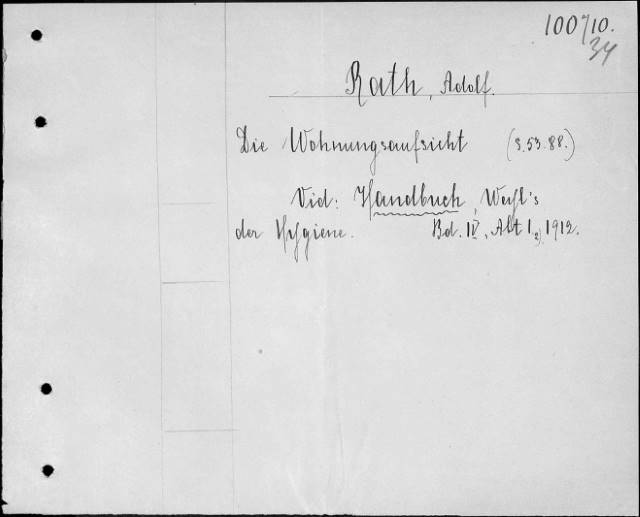 100710.
34
Rath, Adolf.
Die Wohnungsaufsicht (S. 53. 88.)
Vid: Handbuch, Weyl's
der Hygiene. Bd. IV, Abt 1. 1912.